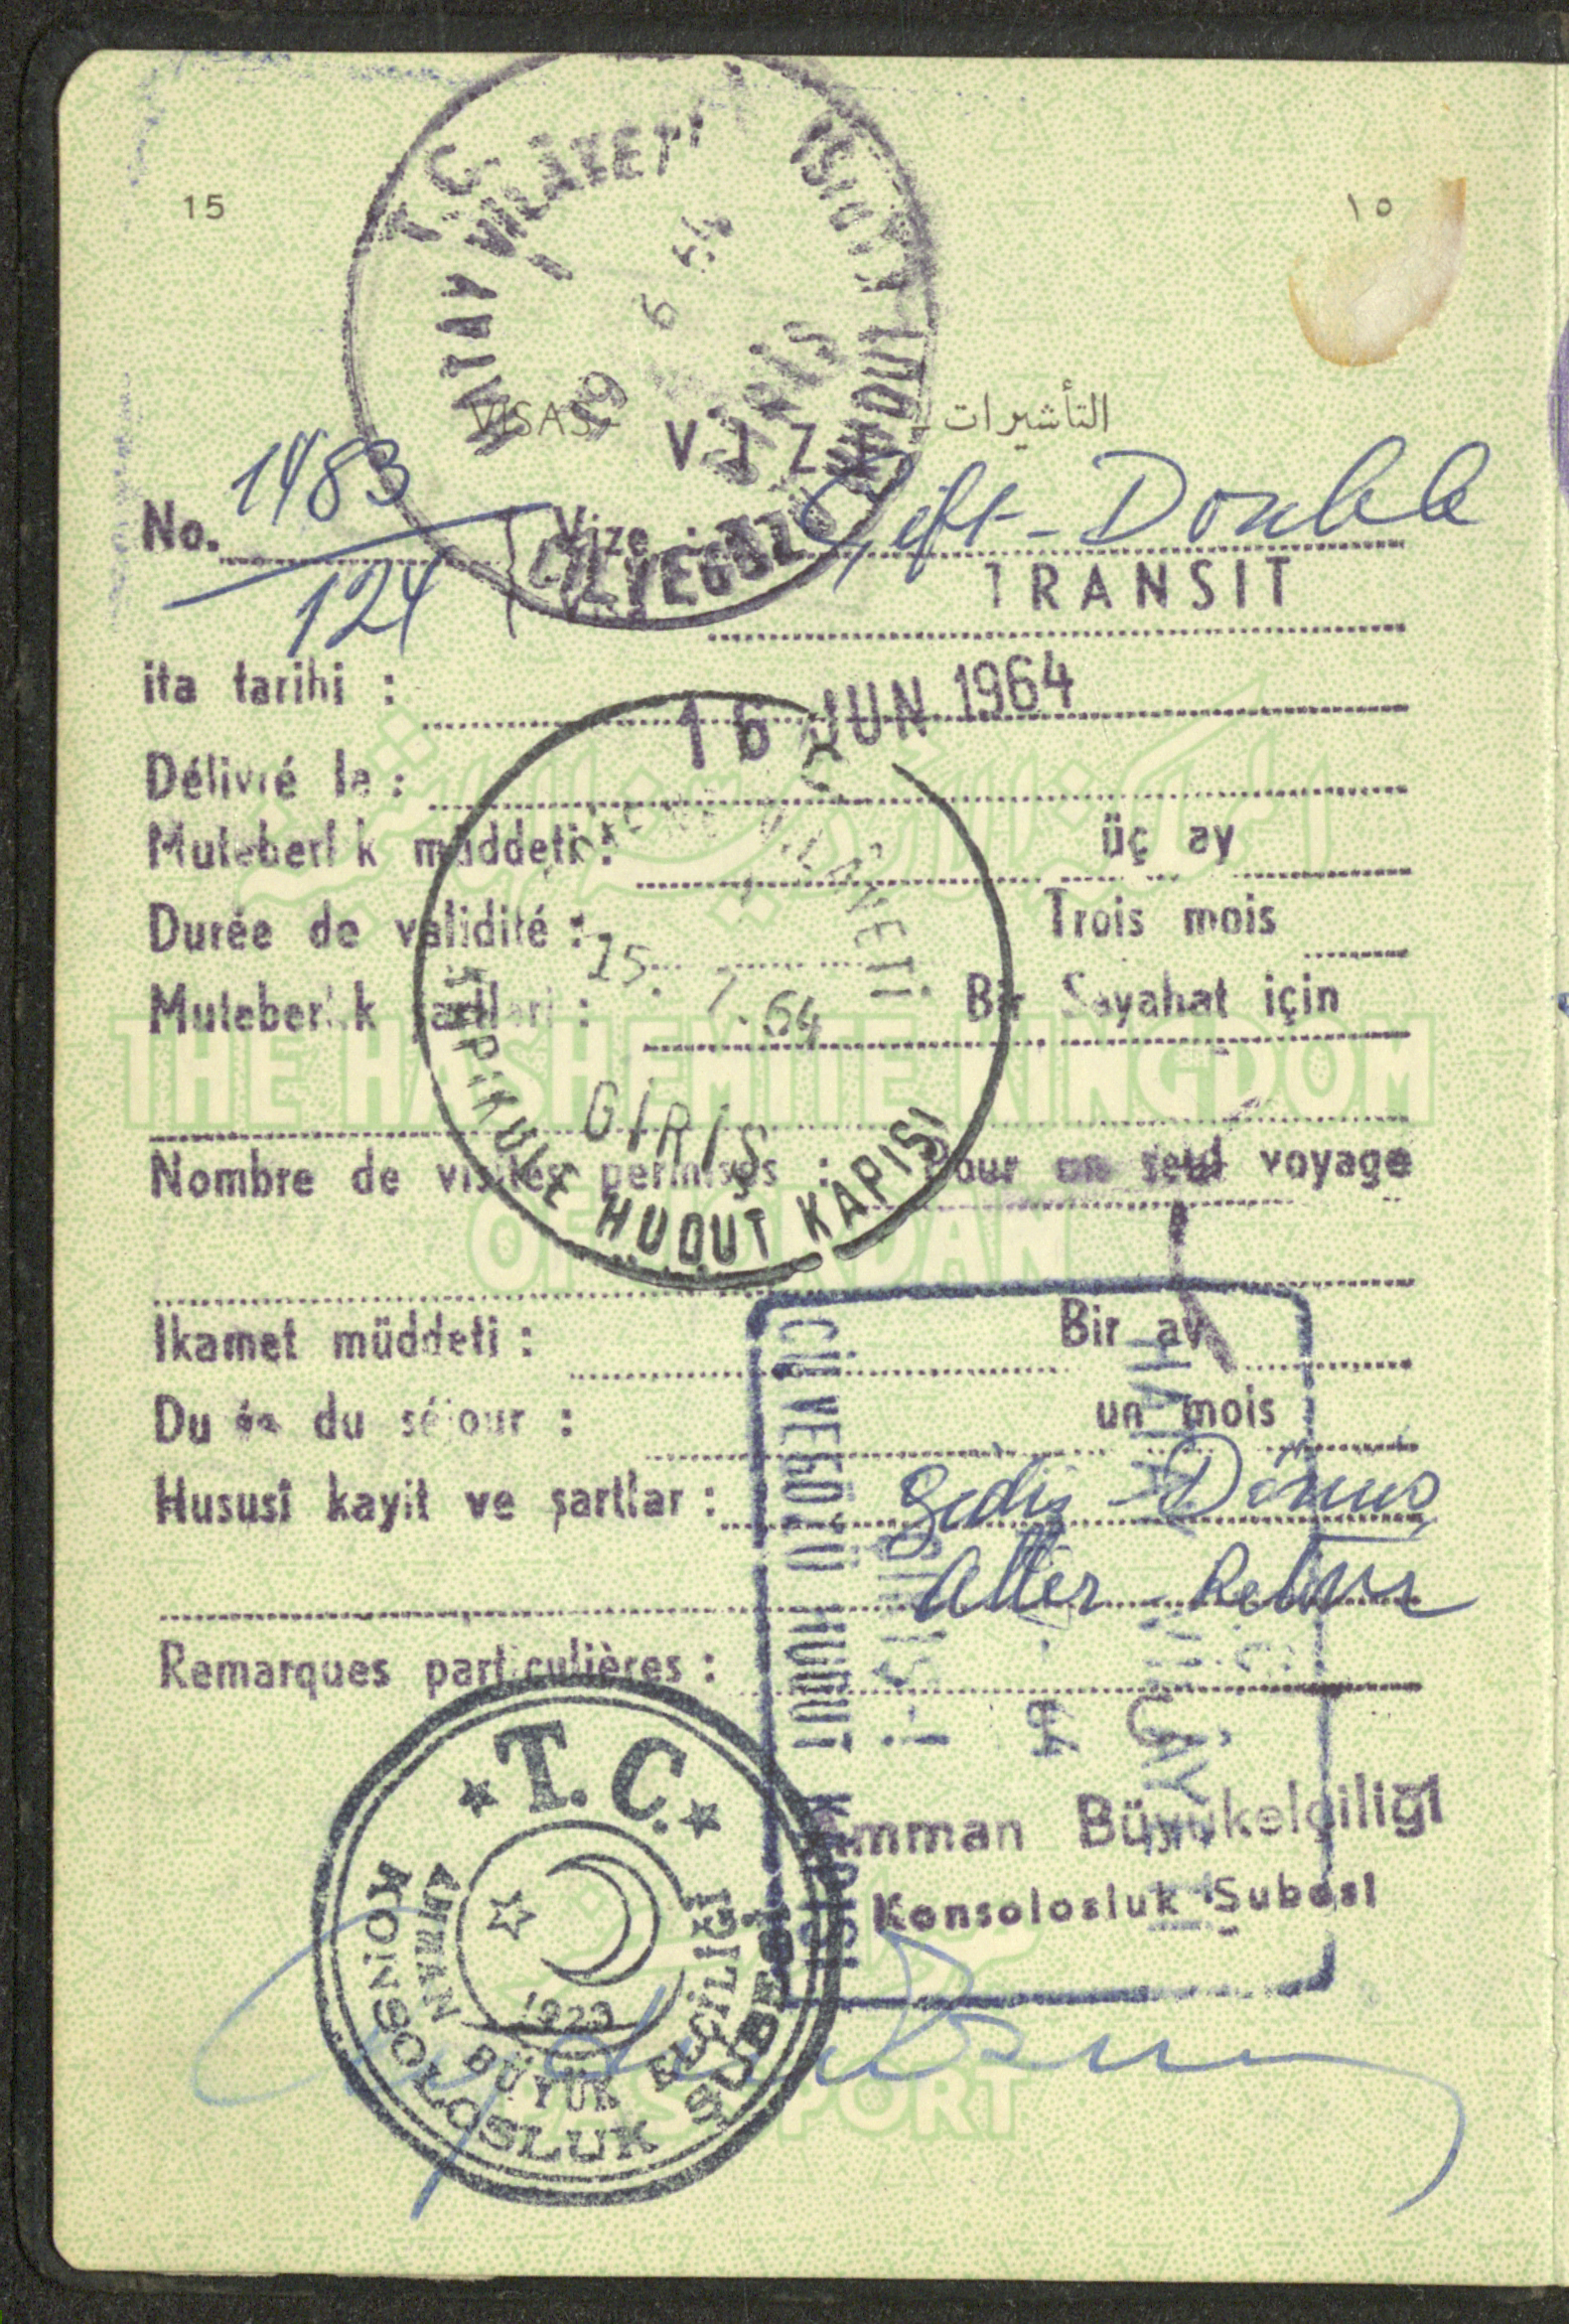 15 ١٥
T.C.
HATAY VİLÂYETİ
19 6 64
GİRİŞ
CİLVEGÖZÜ HUDUT KAPISI
VISAS - التأشيرات
VİZE
No. 1483/124
Vize : Çift - Double
Visa
TRANSIT
ita tarihi : 16 JUN 1964
Délivré le :
Muteberlik müddeti : üç ay
Durée de validité : Trois mois
Muteberlik şartları : Bir Seyahat için
Nombre de visites permises : Pour un seul voyage
VİLAYETİ
15. 7. 64
GİRİŞ
KAPIKULE HUDUT KAPISI
THE HASHEMITE KINGDOM
OF JORDAN
Ikamet müddeti : Bir ay
Durée du séjour : un mois
Hususî kayit ve şartlar : Gidiş - Dönüş
Aller Retour
Remarques particulières :
CİLVEGÖZÜ HUDUT KAPISI
Amman Büyükelçiliği
Konsolosluk Şubesi
T.C.
AMMAN BÜYÜK ELÇİLİĞİ
KONSOLOSLUK ŞUBESİ
1923
PASSPORT